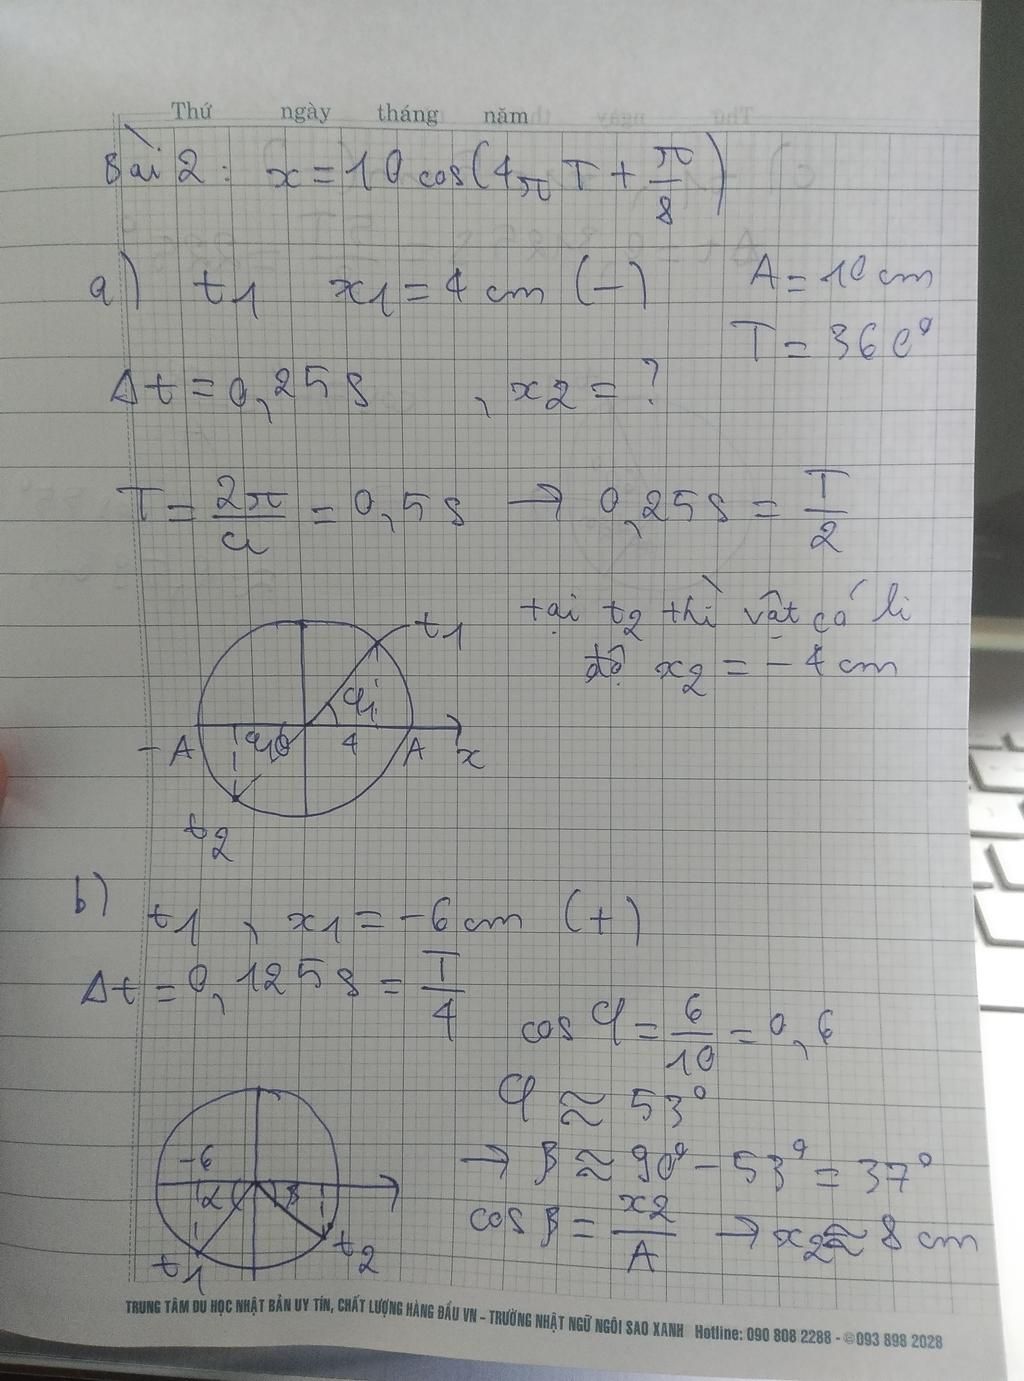 Thứ ngày tháng năm
Bài 2: x = 10 cos(4π T + π/8)
a) t1 x1 = 4 cm (-) A = 10 cm
T = 360°
Δt = 0,25 s , x2 = ?
T = 2π/ω = 0,5 s → 0,25 s = T/2
tại t2 thì vật có li
độ x2 = -4 cm
t1
φ1
-A 4 A x
t2
b) t1 , x1 = -6 cm (+)
Δt = 0,125 s = T/4
cos φ = 6/10 = 0,6
φ ≈ 53°
→ β ≈ 90° - 53° = 37°
cos β = x2/A → x2 ≈ 8 cm
-6
β
t1 t2
TRUNG TÂM DU HỌC NHẬT BẢN UY TÍN, CHẤT LƯỢNG HÀNG ĐẦU VN - TRƯỜNG NHẬT NGỮ NGÔI SAO XANH Hotline: 090 808 2288 - 093 898 2028